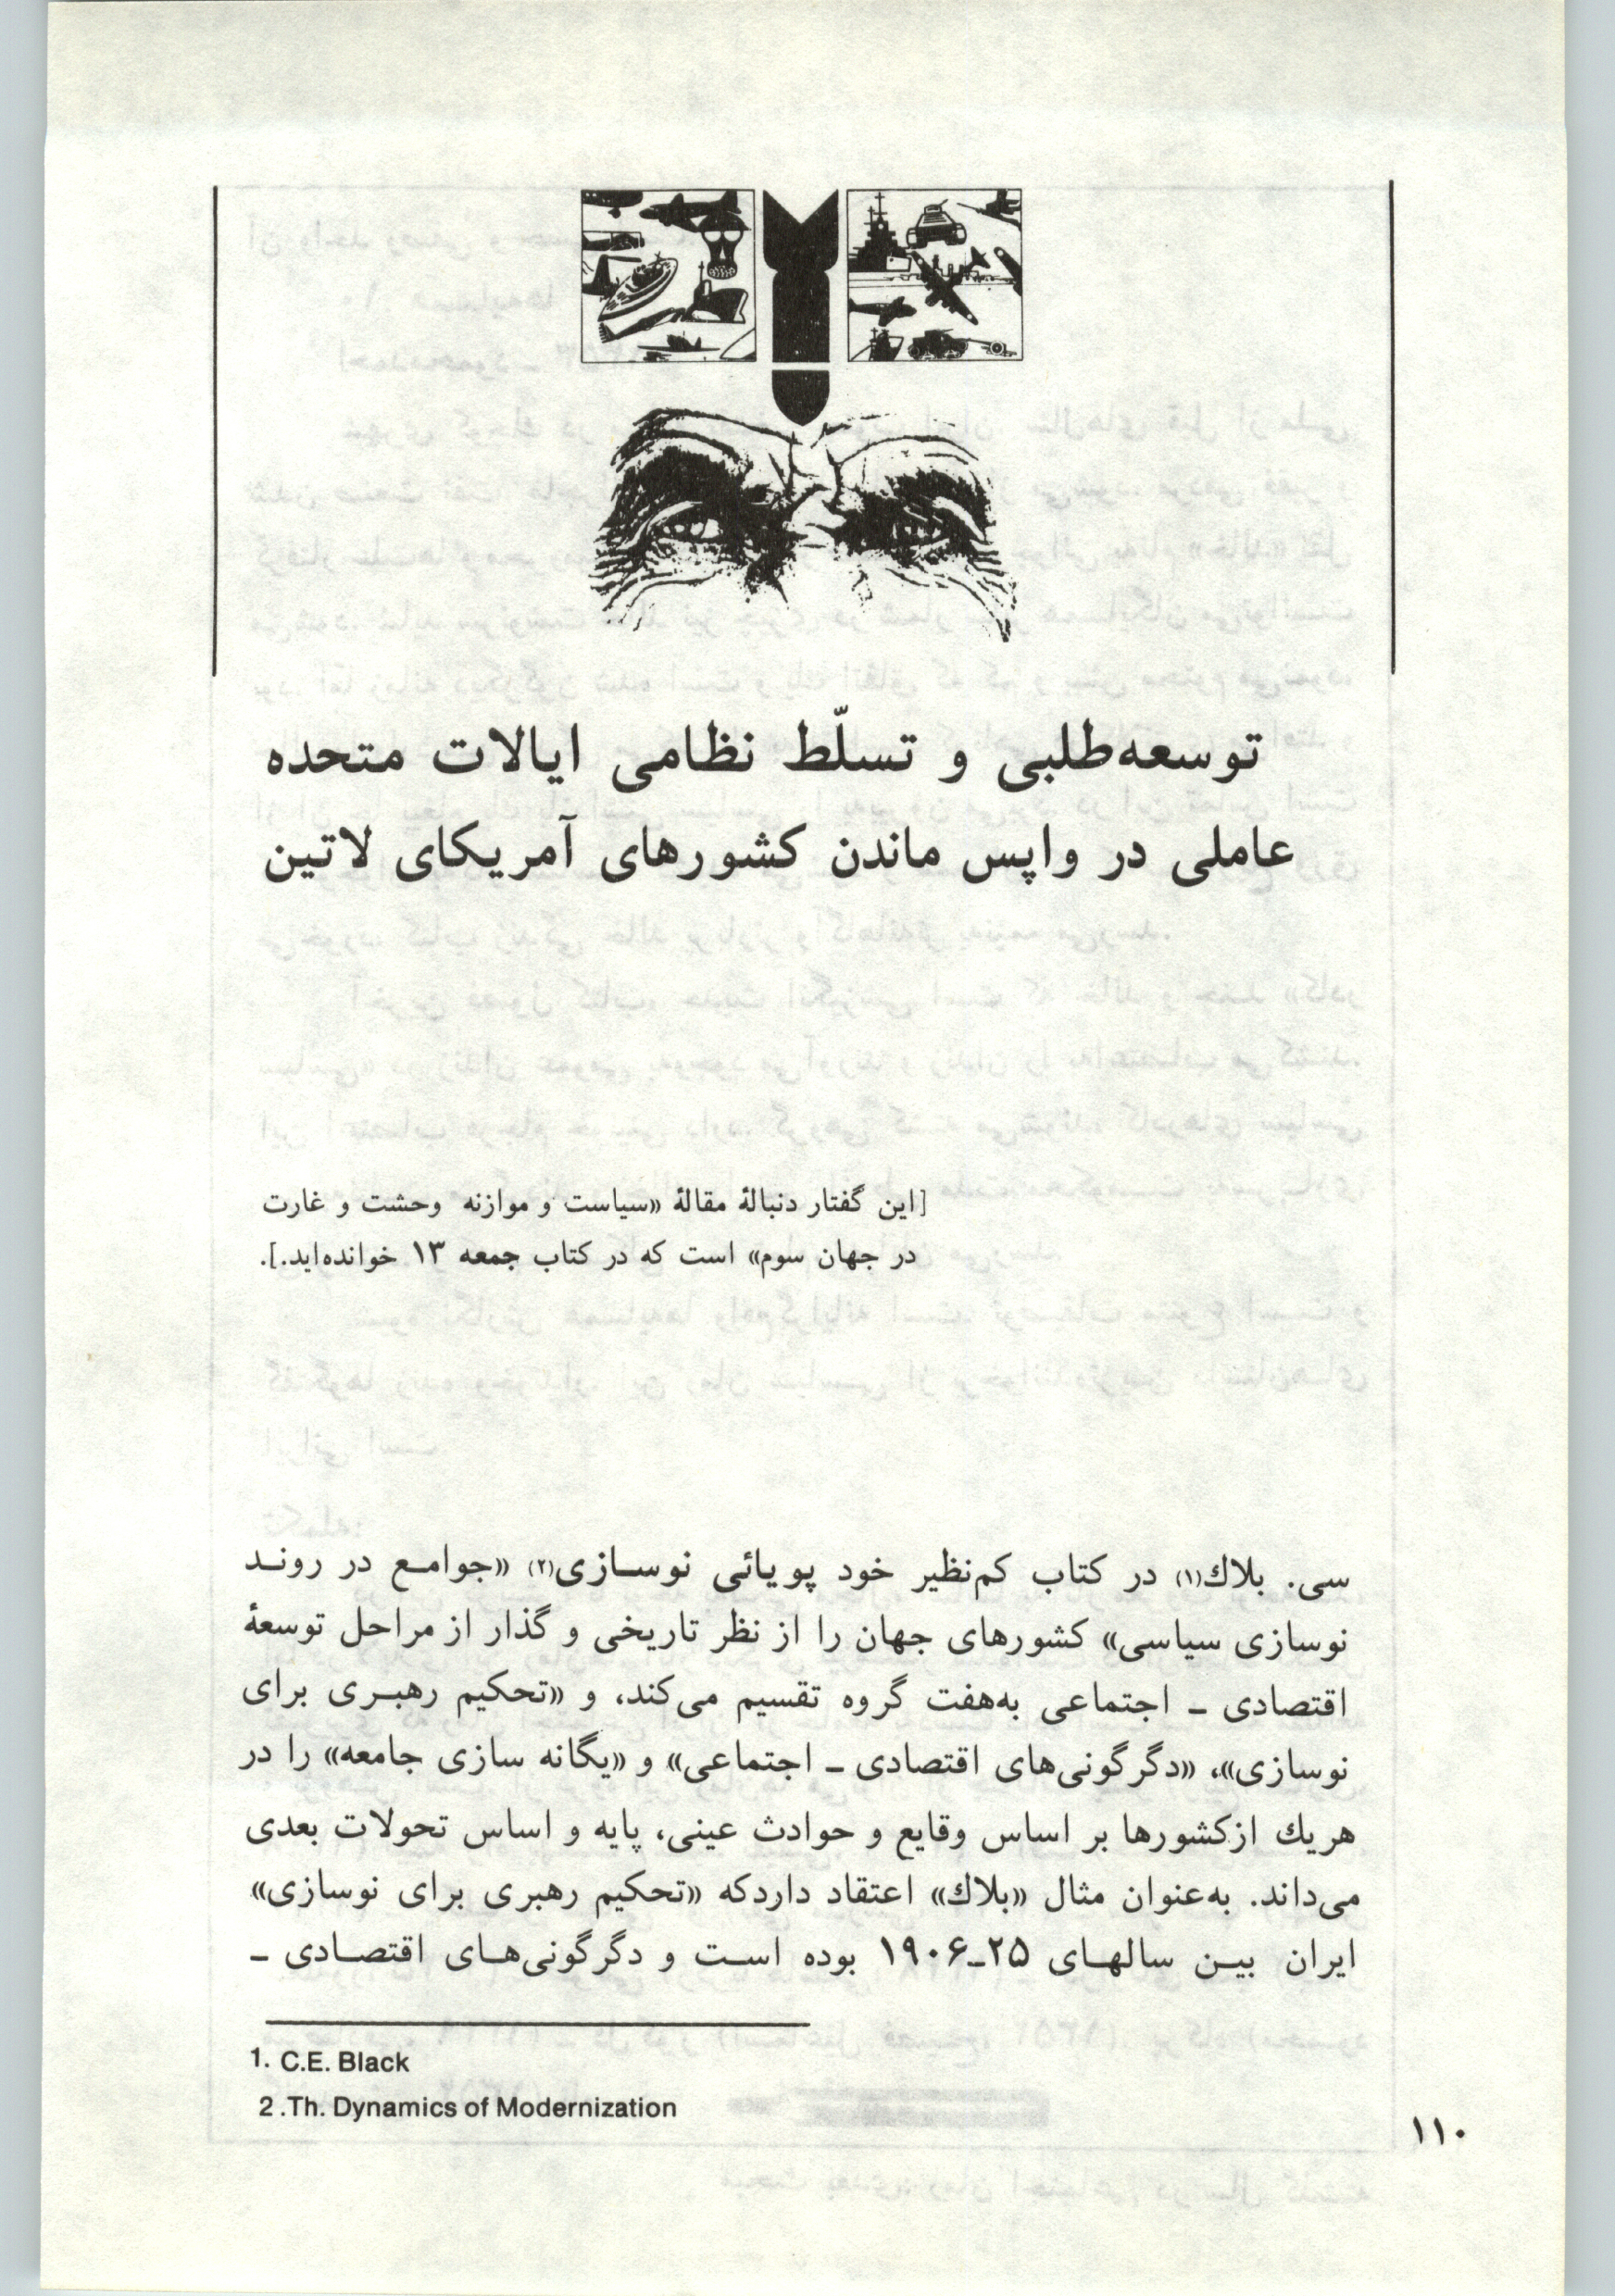 توسعه‌طلبی و تسلّط نظامی ایالات متحده
عاملی در واپس ماندن کشورهای آمریکای لاتین
[این گفتار دنبالهٔ مقالهٔ «سیاست و موازنه وحشت و غارت
در جهان سوم» است که در کتاب جمعه ۱۳ خوانده‌اید.].
سی. بلاك(۱) در کتاب کم‌نظیر خود پویائی نوسازی(۲) «جوامع در روند
نوسازی سیاسی» کشورهای جهان را از نظر تاریخی و گذار از مراحل توسعهٔ
اقتصادی ـ اجتماعی به‌هفت گروه تقسیم می‌کند، و «تحکیم رهبری برای
نوسازی»، «دگرگونی‌های اقتصادی ـ اجتماعی» و «یگانه سازی جامعه» را در
هریك ازکشورها بر اساس وقایع و حوادث عینی، پایه و اساس تحولات بعدی
می‌داند. به‌عنوان مثال «بلاك» اعتقاد داردکه «تحکیم رهبری برای نوسازی»
ایران بین سالهای ۲۵ـ۱۹۰۶ بوده است و دگرگونی‌های اقتصادی ـ
1. C.E. Black
2 .Th. Dynamics of Modernization
۱۱۰